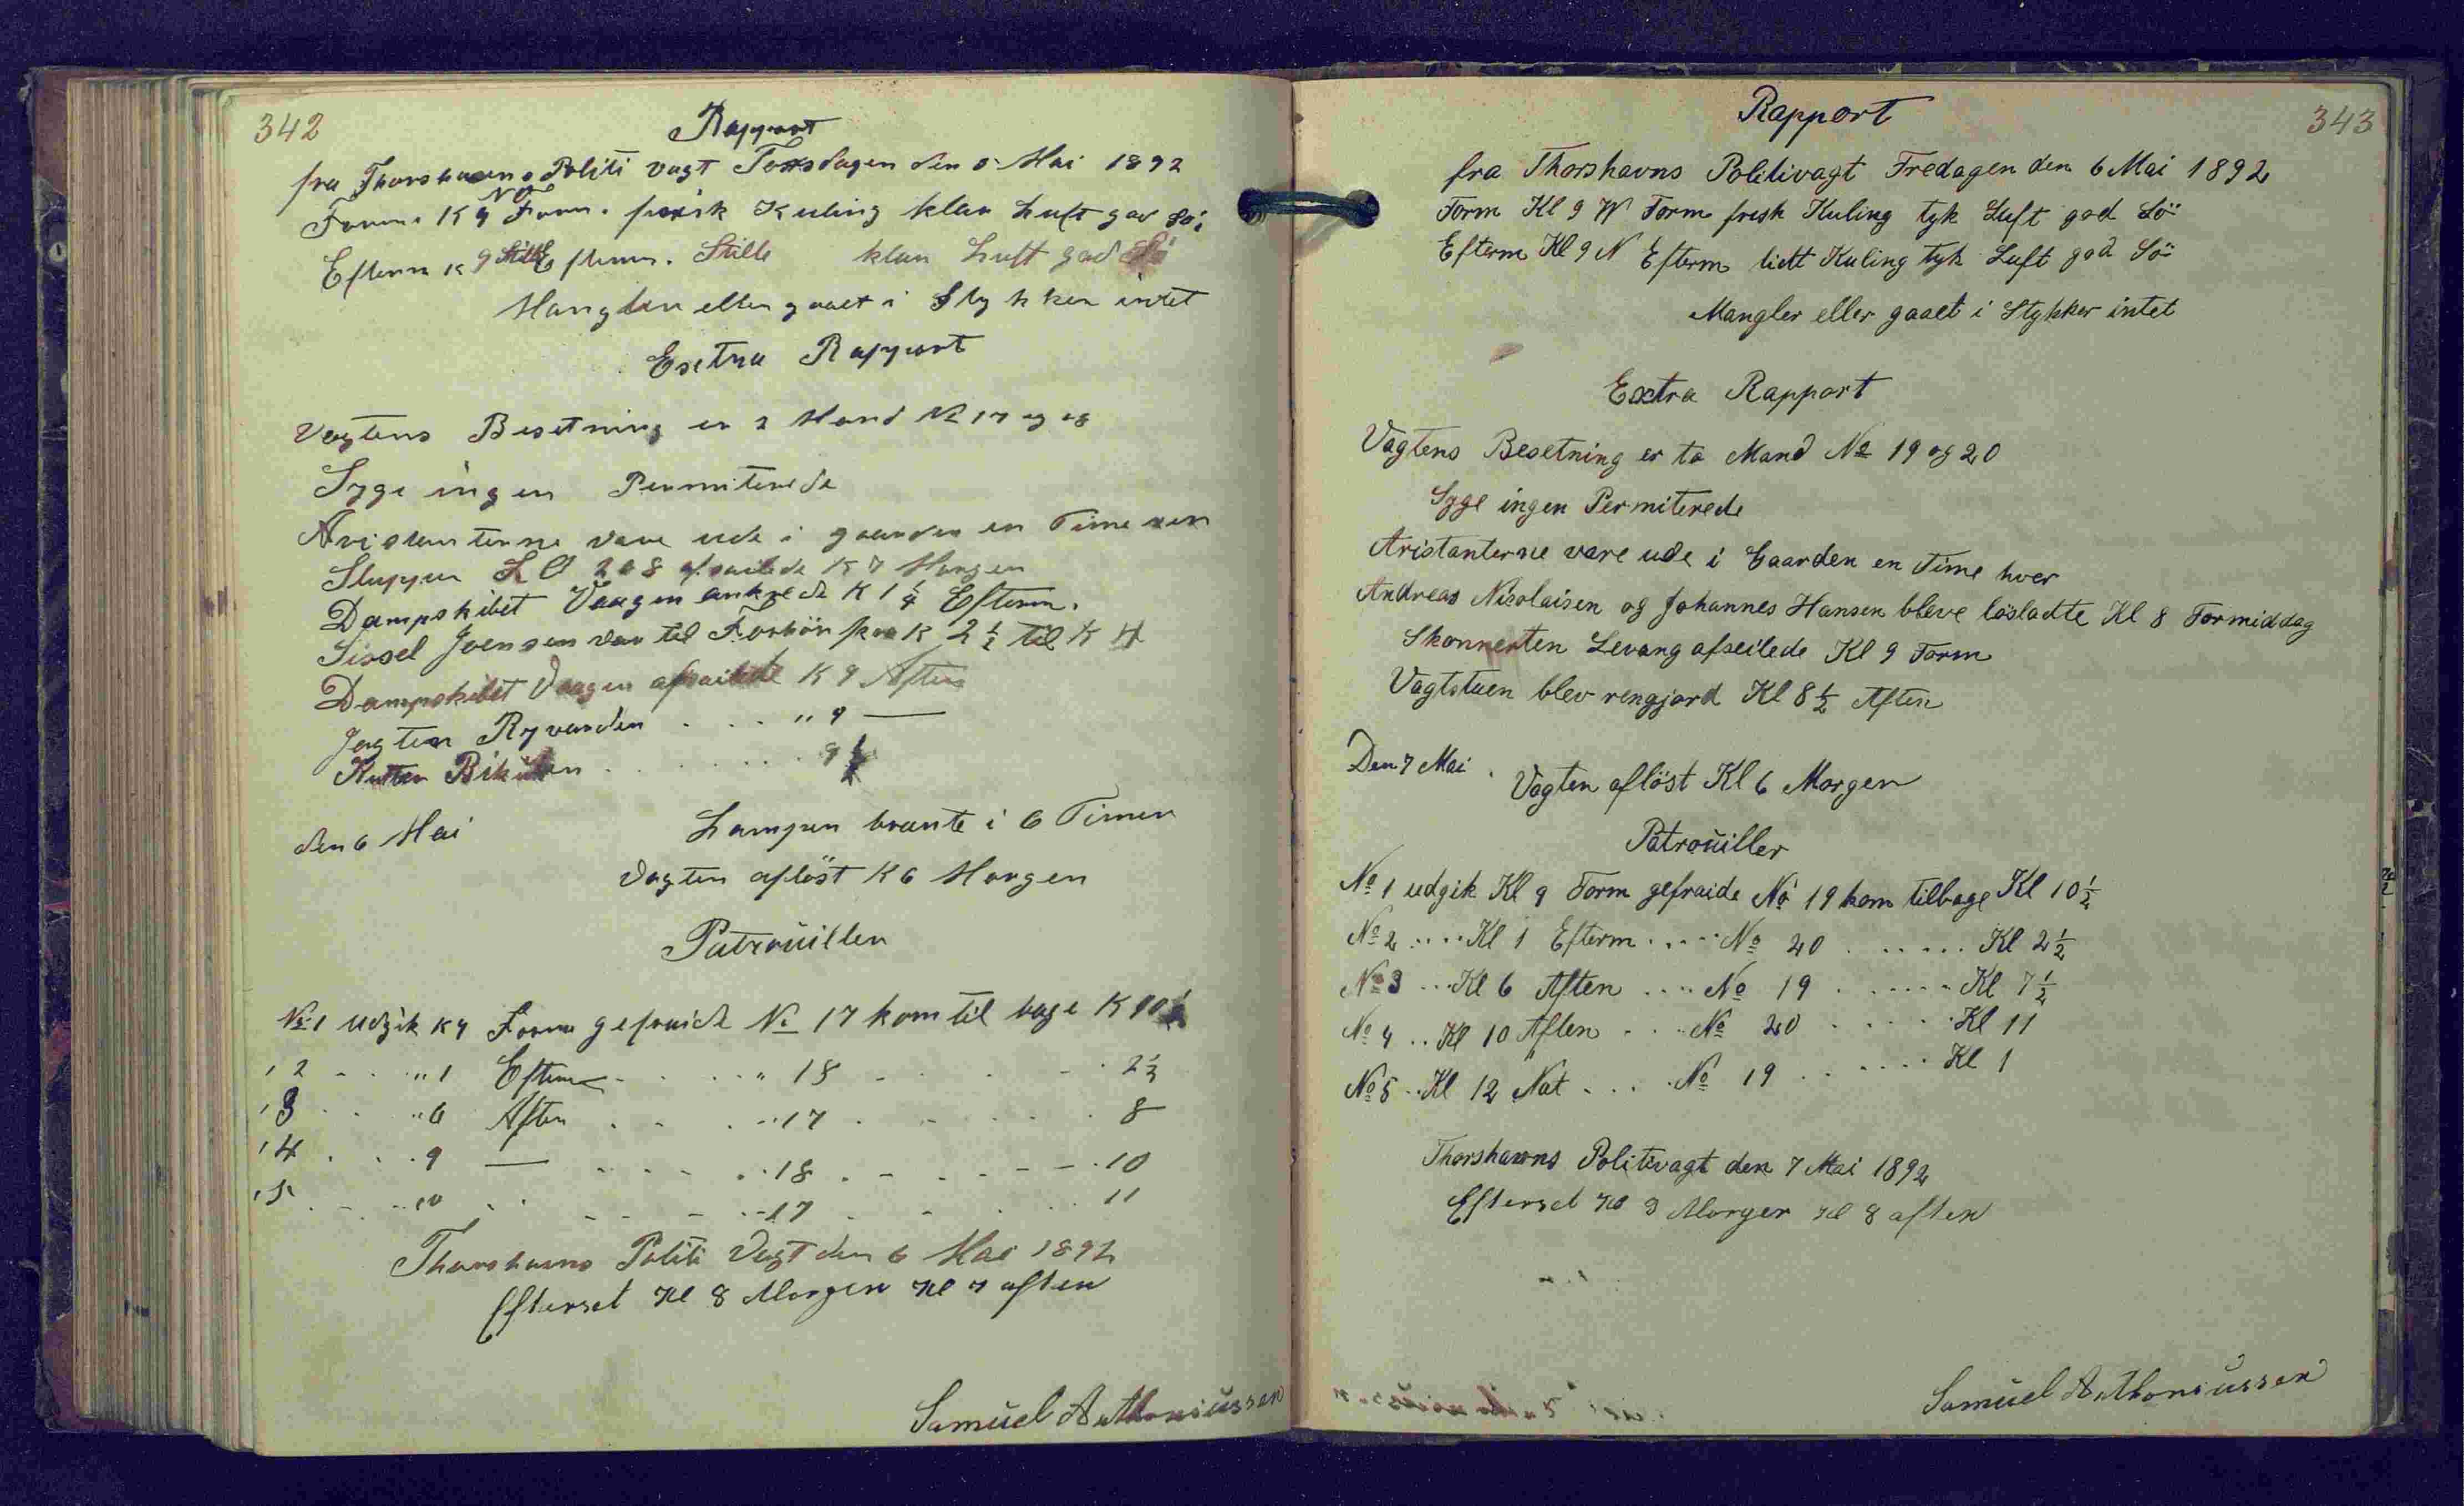 342
Rapport
fra Thorshavns Politi Vagt Torsdagen den 5 Mai 1892
Form. K 9 NO Form. frisk Kuling klar Luft god Sö
Efterm K 9 Stille Efterm. Stille klar Luft god Sö
Mangler eller gaaet i Stykker intet
Extra Rapport
Vagtens Besetning er 2 Mand No 17 og 18
Syge ingen Permiterede
Aristanterne vare ude i gaarden en Time
Sluppen 208 afsailede K 7 Morgen
Dampskibet Vaagen ankrede K 1 1/4 Efterm.
Sissel Joensen var til Forhör fra K 2 1/2 til K 4
Dampskibet Vaagen afsailede K 9 Aften
Jagten Ryvarden . . . " 9 —
Kutter . . . . . . . 9
den 6 Mai
Lampen brante i 6 Timer
Vagten aflöst K 6 Morgen
Patrouiller
No 1 Udgik K 9 Form gefraide No 17 kom til bage K 10 1/2
, 2 - . . " 1 Efterm - . . . " 18 - . . - . 2 1/2
, 3 . . " 6 Aften . . . . " 17 . . . . . 8
, 4 . . . 9 — . . - . . 18 . - . - - . 10
, 5 . - . . 10 . . - - - . . 17 . - . . . 11
Thorshavns Politi Vagt den 6 Mai 1892
Efterset Kl 8 Morgen Kl 7 aften
Samuel Anthoniussen
343
Rapport
fra Thorshavns Politivagt Fredagen den 6 Mai 1892
Form Kl 9 W Form frisk Kuling tyk Luft god Sö
Efterm Kl 9 N Efterm lidt Kuling tyk Luft god Sö
Mangler eller gaaet i Stykker intet
Extra Rapport
Vagtens Besetning er to Mand No 19 og 20
Syge ingen Permiterede
Aristanterne vare ude i Gaarden en Time hver
Andreas Nicolaisen og Johannes Hansen bleve lösladte Kl 8 Formiddag
Skonnerten Levang afseilede Kl 9 Form
Vagtstuen blev rengjord Kl 8 1/2 Aften
Den 7 Mai .
Vagten aflöst Kl 6 Morgen
Patrouiller
No 1 udgik Kl 9 Form gefraide No 19 kom tilbage Kl 10 1/2
No 2 .... Kl 1 Efterm .... No 20 ...... Kl 2 1/2
No 3 ... Kl 6 Aften .... No 19 ...... Kl 7 1/2
No 4 .. Kl 10 Aften ... No 20 ...... Kl 11
No 5 .. Kl 12 Nat .... No 19 ...... Kl 1
Thorshavns Politivagt den 7 Mai 1892
Efterset Kl 9 Morgen Kl 8 aften
Samuel Anthoniussen